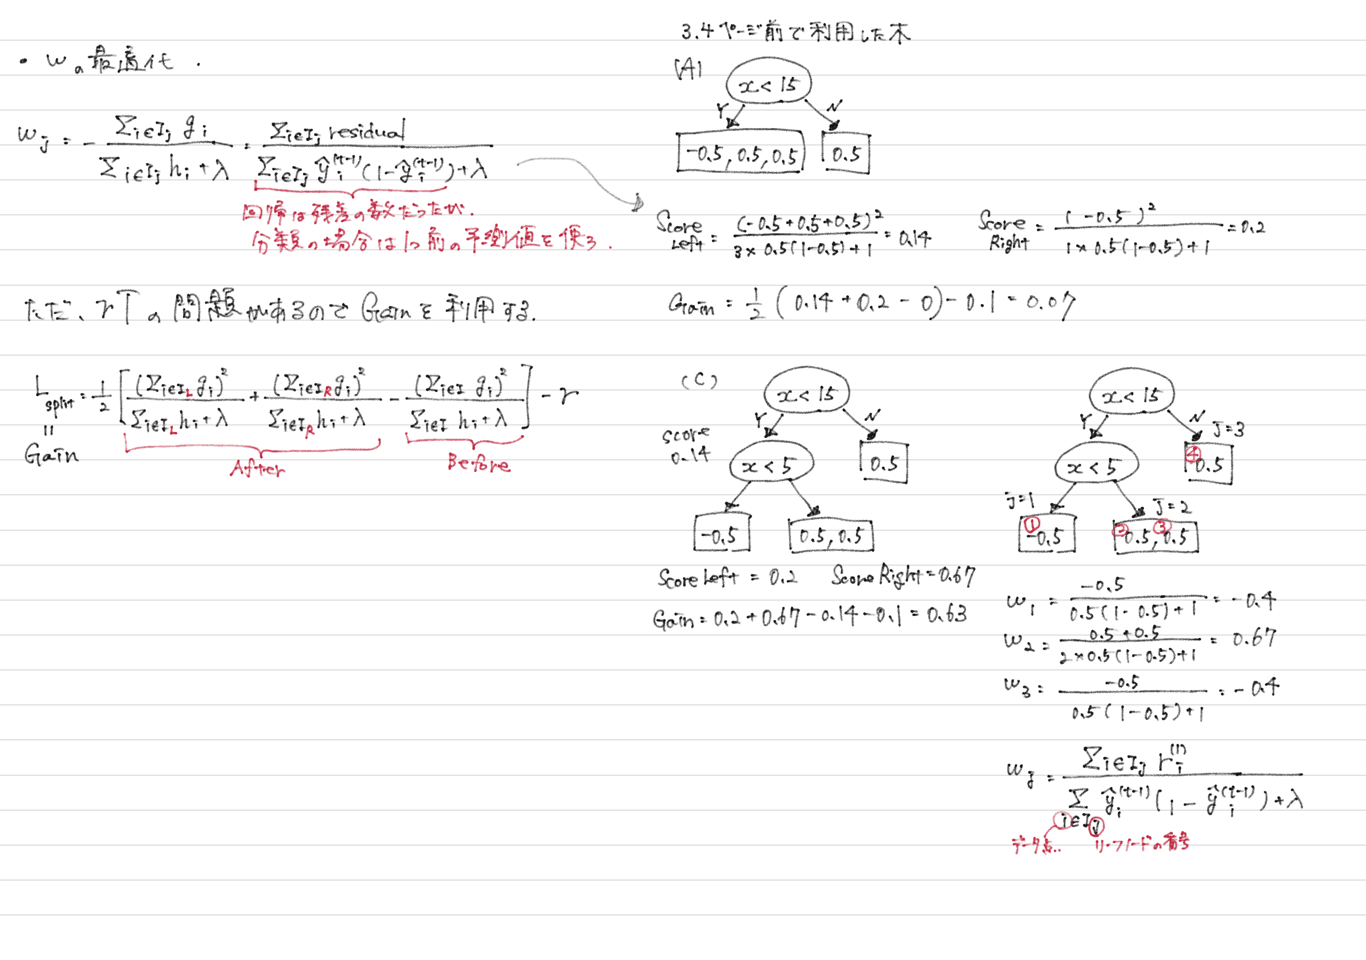 ・wの最適化.
w_j = - Σ_{i∈I_j} g_i / (Σ_{i∈I_j} h_i + λ) = Σ_{i∈I_j} residual / (Σ_{i∈I_j} ŷ_i^{(t-1)} (1-ŷ_i^{(t-1)}) + λ)
回帰は残差の数だったが.
分類の場合は1つ前の予測値を使う.
ただ、rTの問題があるのでGainを利用する.
L_split = 1/2 [ (Σ_{i∈I_L} g_i)² / (Σ_{i∈I_L} h_i + λ) + (Σ_{i∈I_R} g_i)² / (Σ_{i∈I_R} h_i + λ) - (Σ_{i∈I} g_i)² / (Σ_{i∈I} h_i + λ) ] - r
=
Gain
After
Before
3.4ページ前で利用した木
(A)
x < 15
Y
N
-0.5, 0.5, 0.5
0.5
Score Left = (-0.5+0.5+0.5)² / (3×0.5(1-0.5)+1) = 0.14
Score Right = (-0.5)² / (1×0.5(1-0.5)+1) = 0.2
Gain = 1/2 (0.14+0.2-0) - 0.1 = 0.07
(C)
x < 15
Y
N
score 0.14
x < 5
0.5
-0.5
0.5, 0.5
Score Left = 0.2 Score Right = 0.67
Gain = 0.2+0.67-0.14-0.1 = 0.63
x < 15
Y
N
J=3
x < 5
④
0.5
j=1
J=2
①
-0.5
② ③
0.5, 0.5
w_1 = -0.5 / (0.5(1-0.5)+1) = -0.4
w_2 = 0.5+0.5 / (2×0.5(1-0.5)+1) = 0.67
w_3 = -0.5 / (0.5(1-0.5)+1) = -0.4
w_j = Σ_{i∈I_j} r_i^{(1)} / (Σ_{i∈I_j} ŷ_i^{(t-1)} (1-ŷ_i^{(t-1)}) + λ)
データ点..
リーフノードの番号